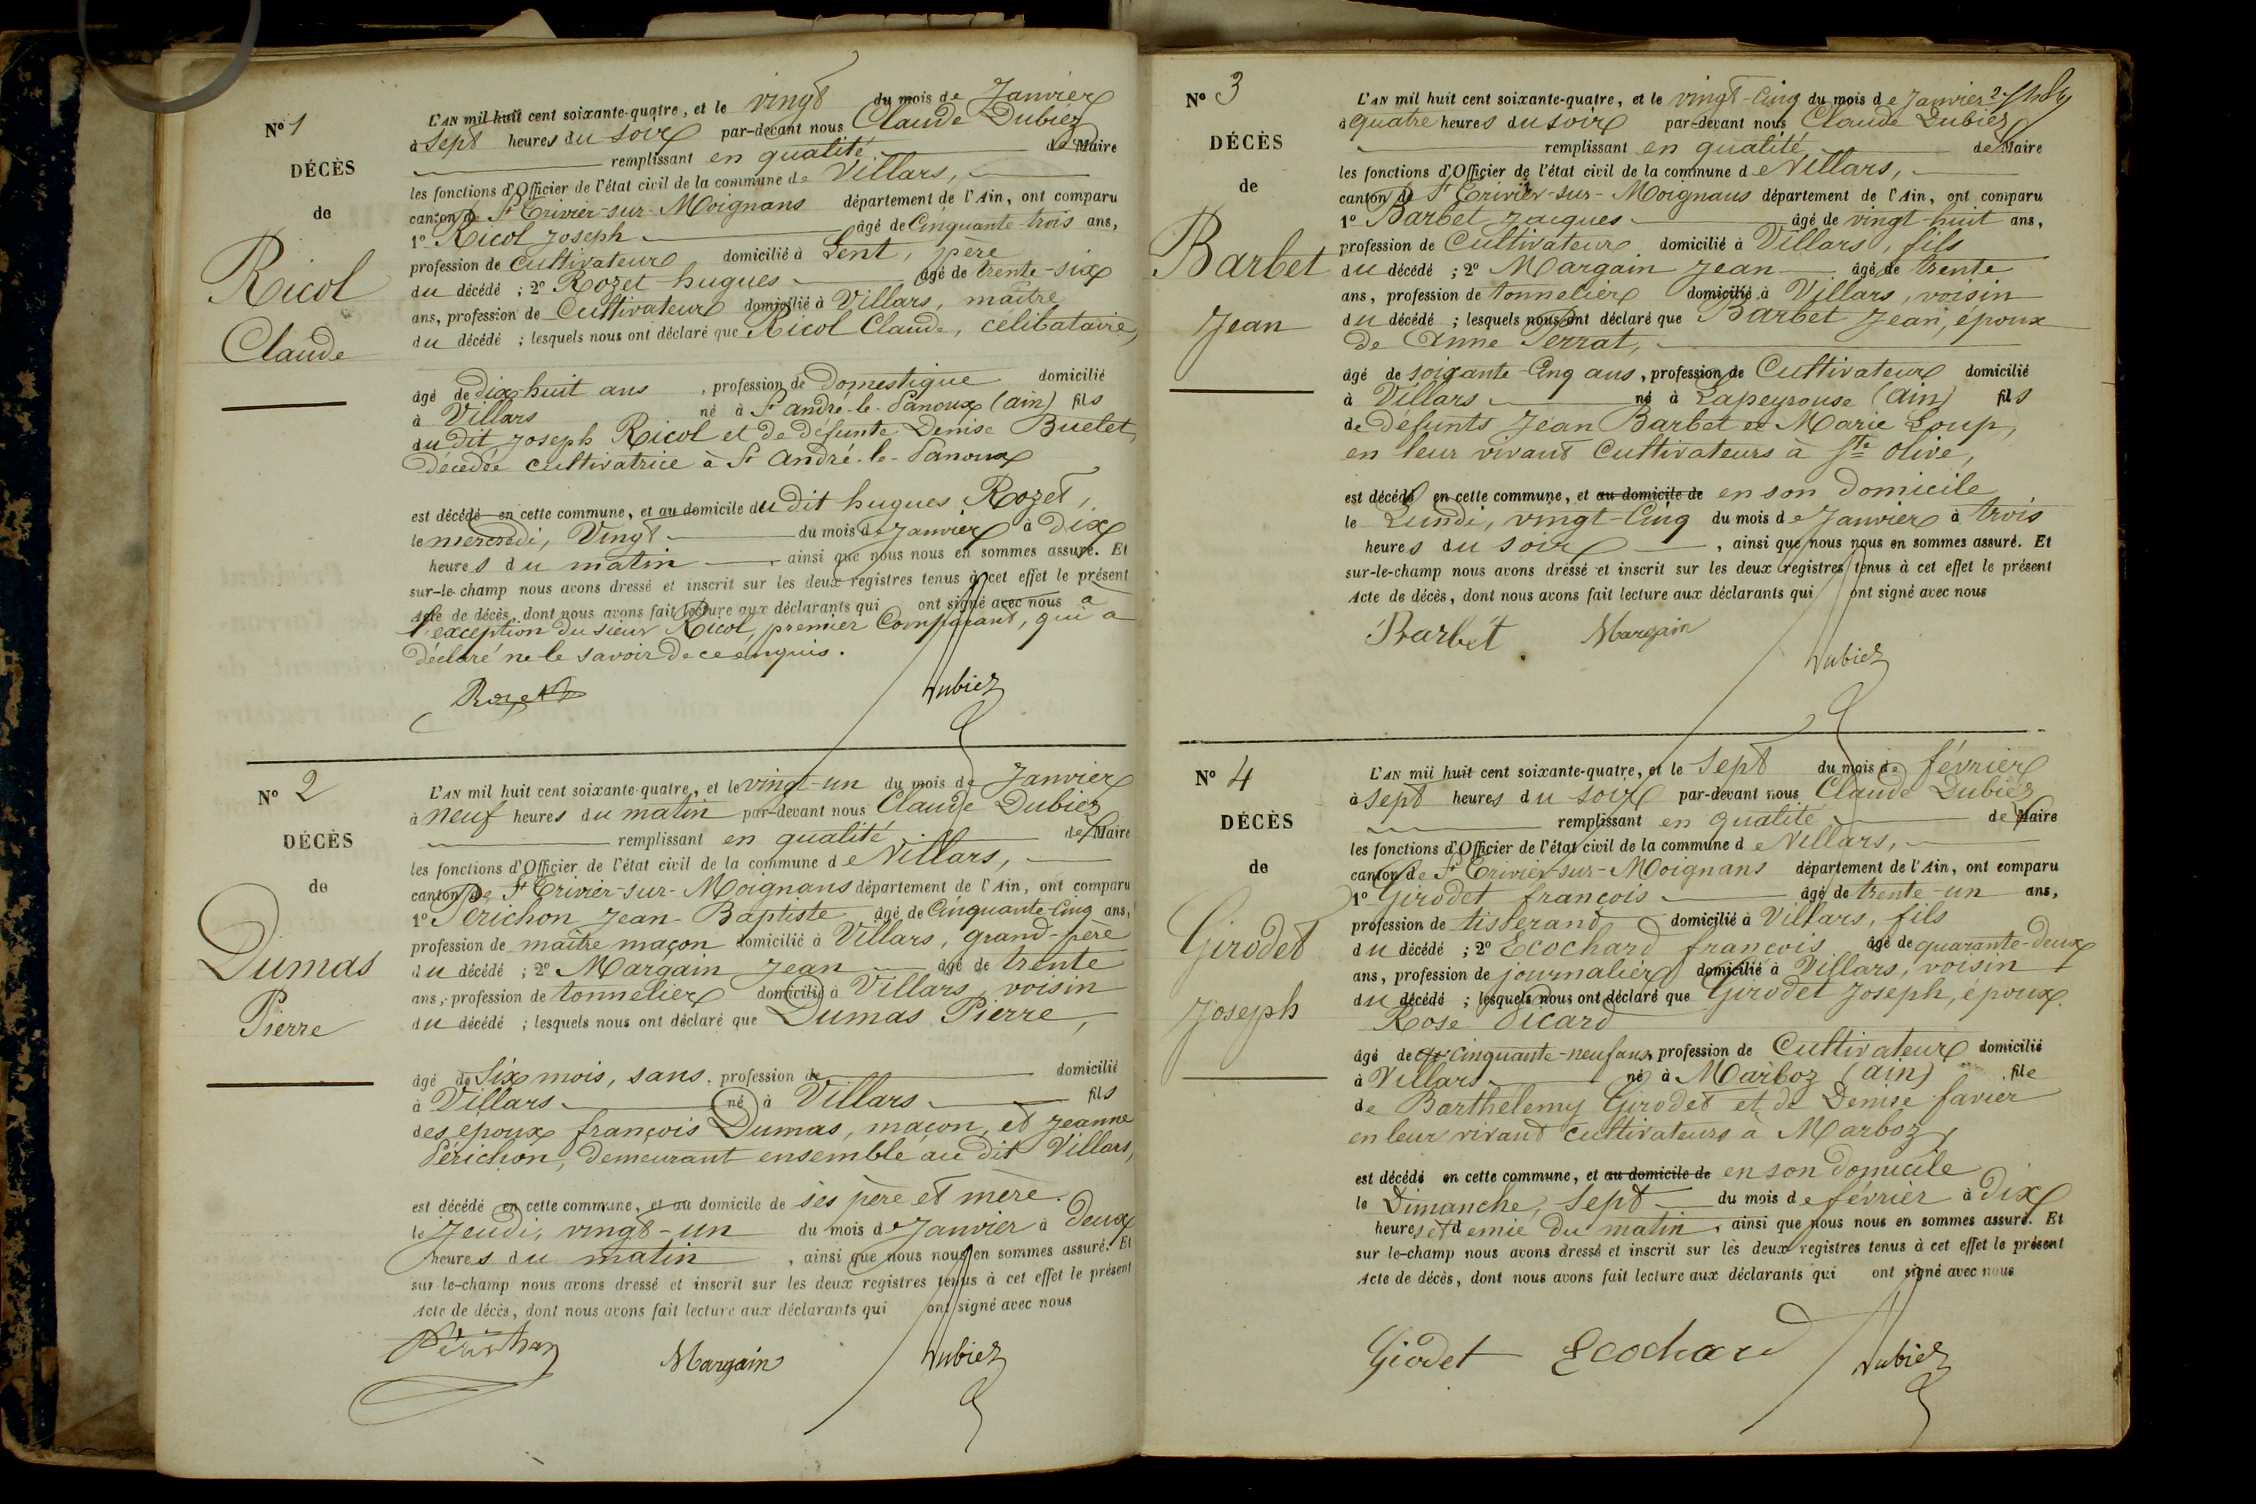 Nº 1
DÉCÈS
de
Ricol
Claude
L'AN mil huit cent soixante-quatre, et le vingt du mois de Janvier
à sept heures du soir par-devant nous Claude Dubiez
remplissant en qualité de Maire
les fonctions d'Officier de l'état civil de la commune de Villars,
canton de St Trivier-sur-Moignans département de l'Ain, ont comparu
1º Ricol Joseph âgé de Cinquante-trois ans,
profession de cultivateur domicilié à Lent, père
du décédé ; 2º Rozet hugues âgé de trente-six
ans, profession de Cultivateur domicilié à Villars, maître
du décédé ; lesquels nous ont déclaré que Ricol Claude, célibataire,
âgé de dix-huit ans, profession de Domestique domicilié
à Villars né à St andré-le-Panoux (ain) fils
du dit Joseph Ricol et de défunte Denise Buelet,
Décédée cultivatrice à St André-le-Panoux
est décédé en cette commune, et au domicile du dit hugues Rozet,
le mercredi, Vingt du mois de Janvier à Dix
heures du matin, ainsi que nous nous en sommes assuré. Et
sur-le-champ nous avons dressé et inscrit sur les deux registres tenus à cet effet le présent
Acte de décès, dont nous avons fait lecture aux déclarants qui ont signé avec nous à
l'exception du sieur Ricol, premier Comparant, qui a
Déclaré ne le savoir de ce enquis.
Rozet Dubiez
Nº 2
DÉCÈS
de
Dumas
Pierre
L'AN mil huit cent soixante-quatre, et le vingt-un du mois de Janvier
à neuf heures du matin par-devant nous Claude Dubiez
remplissant en qualité de Maire
les fonctions d'Officier de l'état civil de la commune de Villars,
canton de St Trivier-sur-Moignans département de l'Ain, ont comparu
1º Perichon Jean-Baptiste âgé de Cinquante-Cinq ans,
profession de maître maçon domicilié à Villars, grand-père
du décédé ; 2º Margain Jean âgé de trente
ans, profession de tonnelier domicilié à Villars, voisin
du décédé ; lesquels nous ont déclaré que Dumas Pierre,
âgé de Six mois, sans profession de domicilié
à Villars né à Villars fils
des époux françois Dumas, maçon, et Jeanne
Périchon, demeurant ensemble au dit Villars,
est décédé en cette commune, et au domicile de ses père et mère.
le Jeudi, vingt-un du mois de Janvier à Deux
heures du matin, ainsi que nous nous en sommes assuré. Et
sur-le-champ nous avons dressé et inscrit sur les deux registres tenus à cet effet le présent
Acte de décès, dont nous avons fait lecture aux déclarants qui ont signé avec nous
Périchon Margain Dubiez
Nº 3
DÉCÈS
de
Barbet
Jean
L'AN mil huit cent soixante-quatre, et le vingt-Cinq du mois de Janvier
à quatre heures du soir par-devant nous Claude Dubiez
remplissant en qualité de Maire
les fonctions d'Officier de l'état civil de la commune de Villars,
canton de St Trivier-sur-Moignans département de l'Ain, ont comparu
1º Barbet Jacques âgé de vingt-huit ans,
profession de Cultivateur domicilié à Villars, fils
du décédé ; 2º Margain Jean âgé de trente
ans, profession de tonnelier domicilié à Villars, voisin
du décédé ; lesquels nous ont déclaré que Barbet Jean, époux
de Anne Perrat,
âgé de soixante-Cinq ans, profession de Cultivateur domicilié
à Villars né à Lapeyrouse (Ain) fils
de défunts Jean Barbet et Marie Loup,
en leur vivant Cultivateurs à Ste Olive,
est décédé en cette commune, et au domicile de en son domicile
le Lundi, vingt-Cinq du mois de Janvier à trois
heures du soir, ainsi que nous nous en sommes assuré. Et
sur-le-champ nous avons dressé et inscrit sur les deux registres tenus à cet effet le présent
Acte de décès, dont nous avons fait lecture aux déclarants qui ont signé avec nous
Barbet Margain Dubiez
Nº 4
DÉCÈS
de
Girodet
Joseph
L'AN mil huit cent soixante-quatre, et le sept du mois de février
à sept heures du soir par-devant nous Claude Dubiez
remplissant en qualité de Maire
les fonctions d'Officier de l'état civil de la commune de Villars,
canton de St Trivier-sur-Moignans département de l'Ain, ont comparu
1º Girodet françois âgé de trente-un ans,
profession de tisserand domicilié à Villars, fils
du décédé ; 2º Ecochard françois âgé de quarante-deux
ans, profession de journalier domicilié à Villars, voisin
du décédé ; lesquels nous ont déclaré que Girodet Joseph, époux
Rose Picard
âgé de cinquante-neuf ans, profession de Cultivateur domicilié
à Villars né à Marboz (ain) fils
de Barthélemy Girodet et de Denise favier
en leur vivant cultivateurs à Marboz,
est décédé en cette commune, et au domicile de en son domicile
le Dimanche, sept du mois de février à Dix
heures et demie du matin, ainsi que nous nous en sommes assuré. Et
sur-le-champ nous avons dressé et inscrit sur les deux registres tenus à cet effet le présent
Acte de décès, dont nous avons fait lecture aux déclarants qui ont signé avec nous
Giodet Ecochard Dubiez